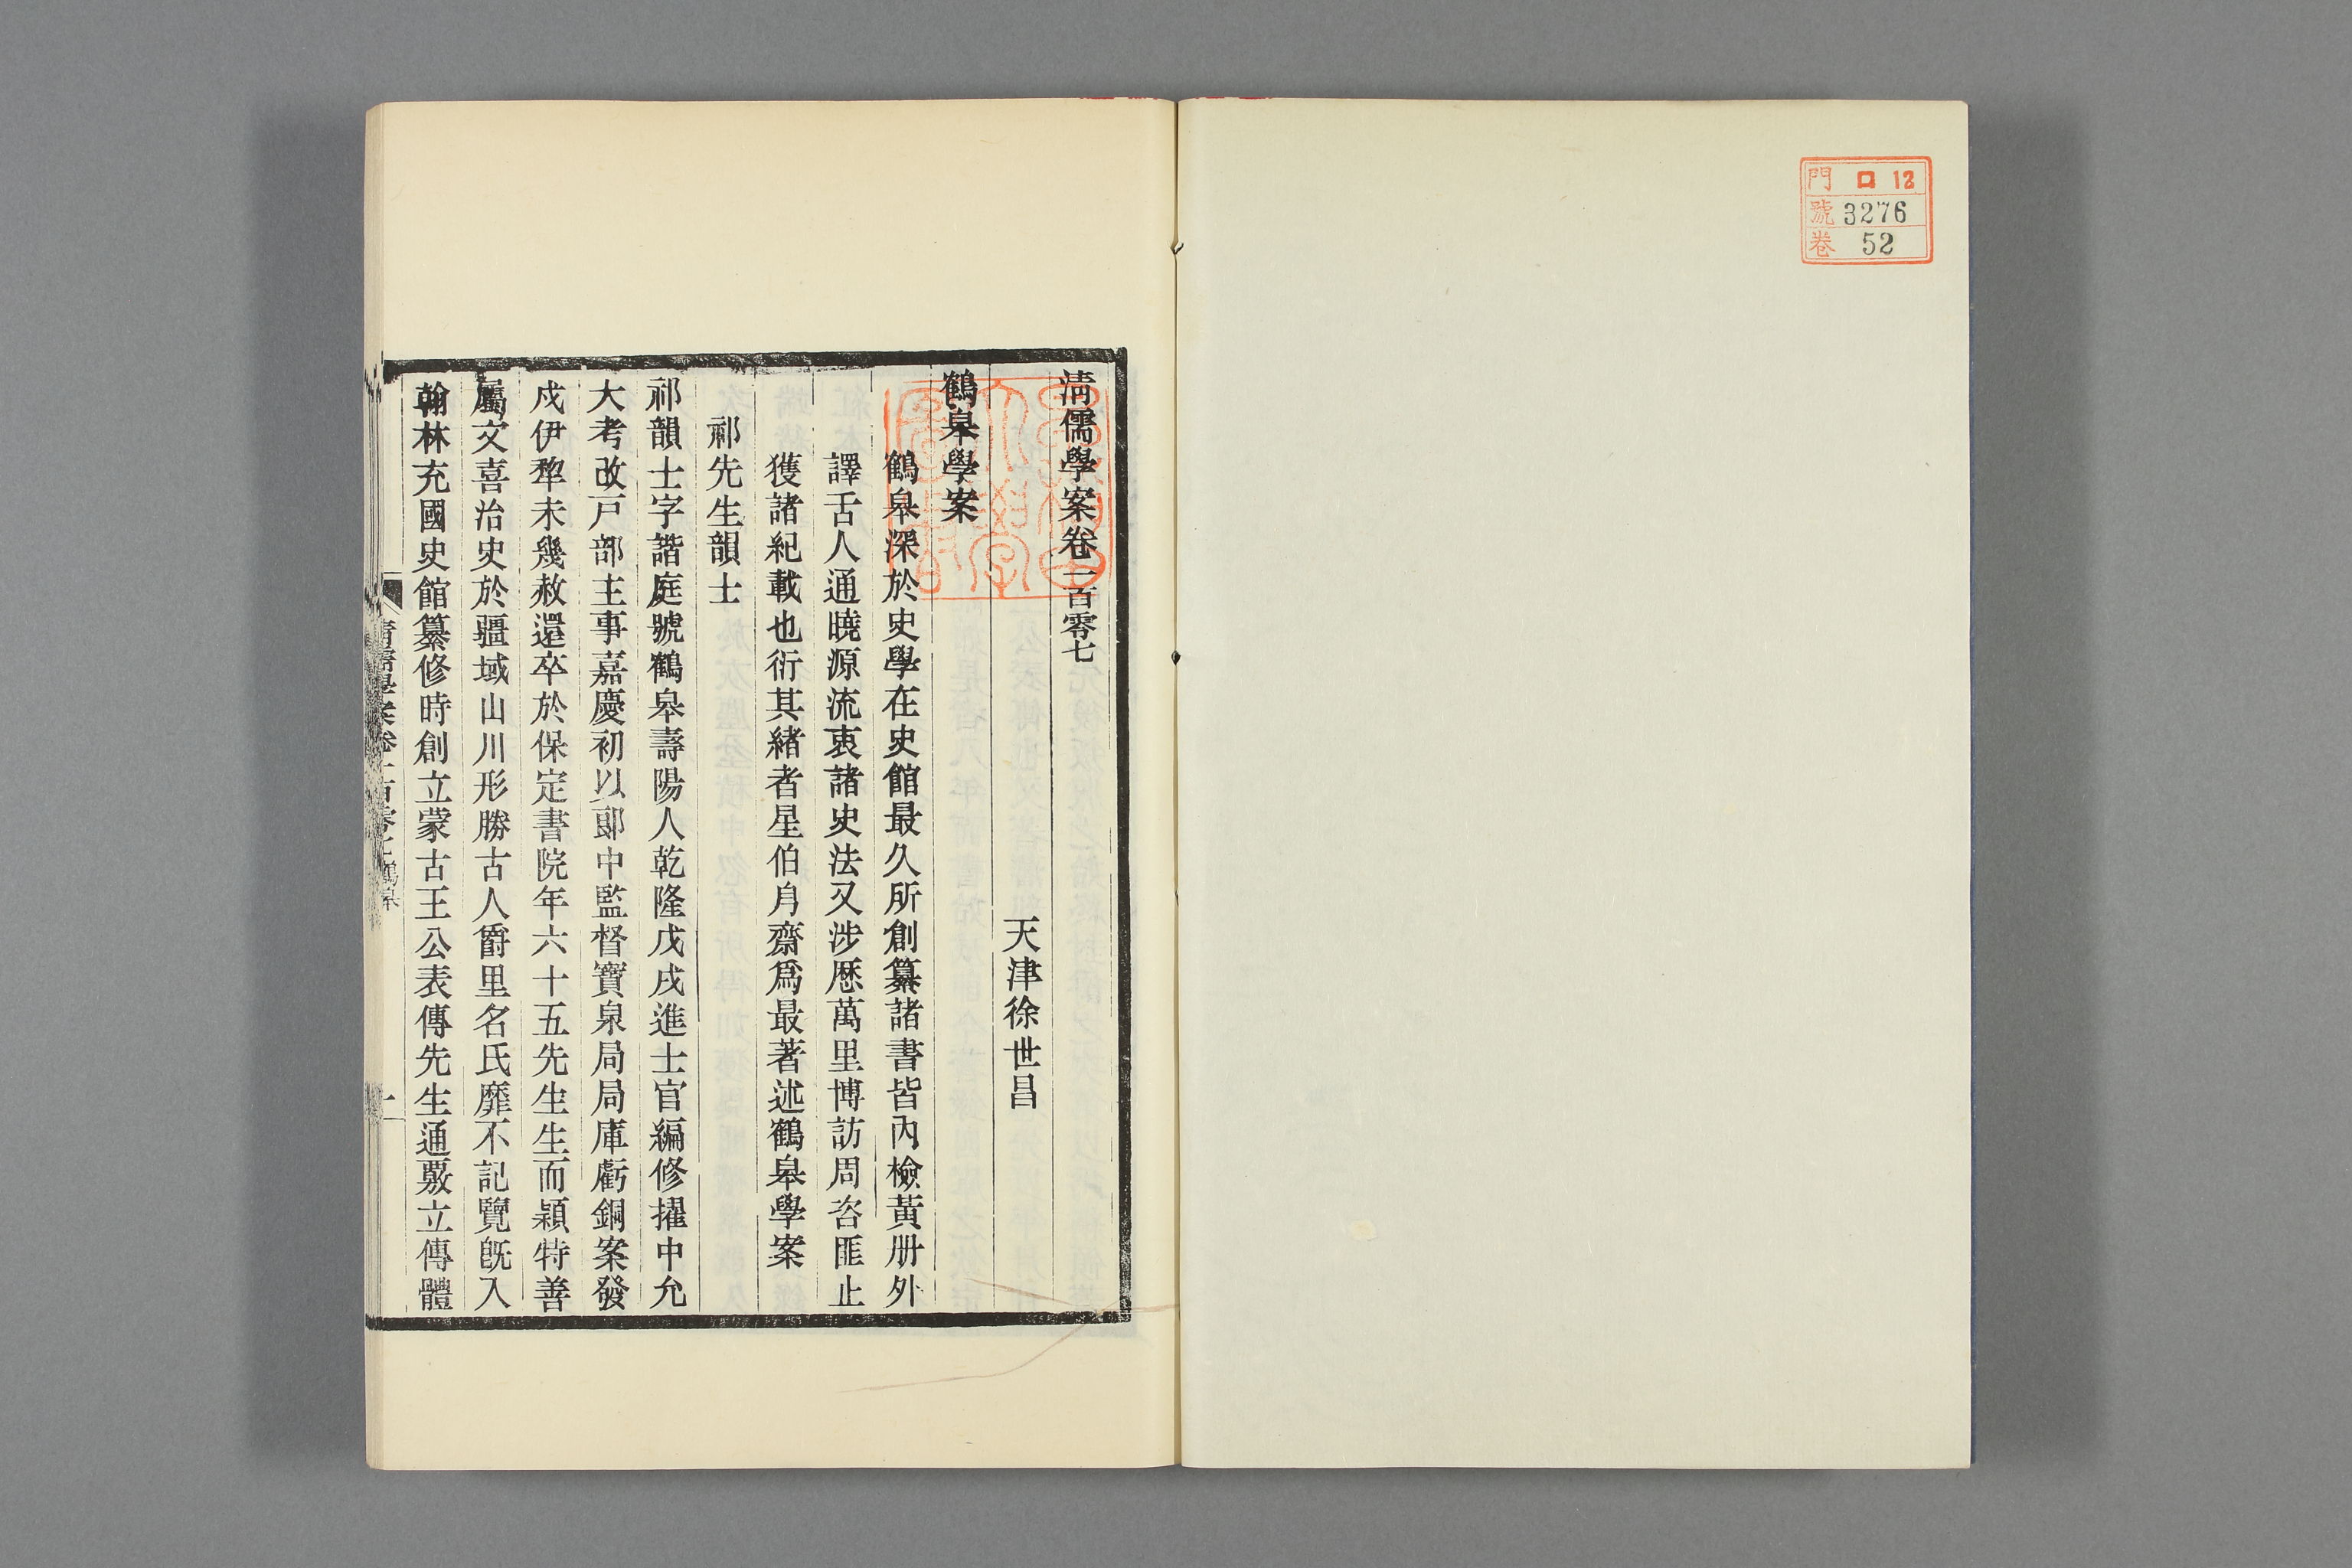 門 ロ 12
號 3276
卷 52
清儒學案卷一百零七
天津徐世昌
鶴皋學案
鶴皋深於史學在史館最久所創纂諸書皆內檢黃册外
譯舌人通曉源流衷諸史法又涉歷萬里博訪周咨匪止
獲諸紀載也衍其緒者星伯㐆齋爲最著述鶴皋學案
祁先生韻士
祁韻士字諧庭號鶴皋壽陽人乾隆戊戌進士官編修擢中允
大考改戸部主事嘉慶初以郞中監督寶泉局局庫虧銅案發
戍伊犂未幾赦還卒於保定書院年六十五先生生而穎特善
屬文喜治史於疆域山川形勝古人爵里名氏靡不記覽旣入
翰林充國史館纂修時創立蒙古王公表傳先生通覈立傳體
清儒學案卷一百零七 鶴皋
一